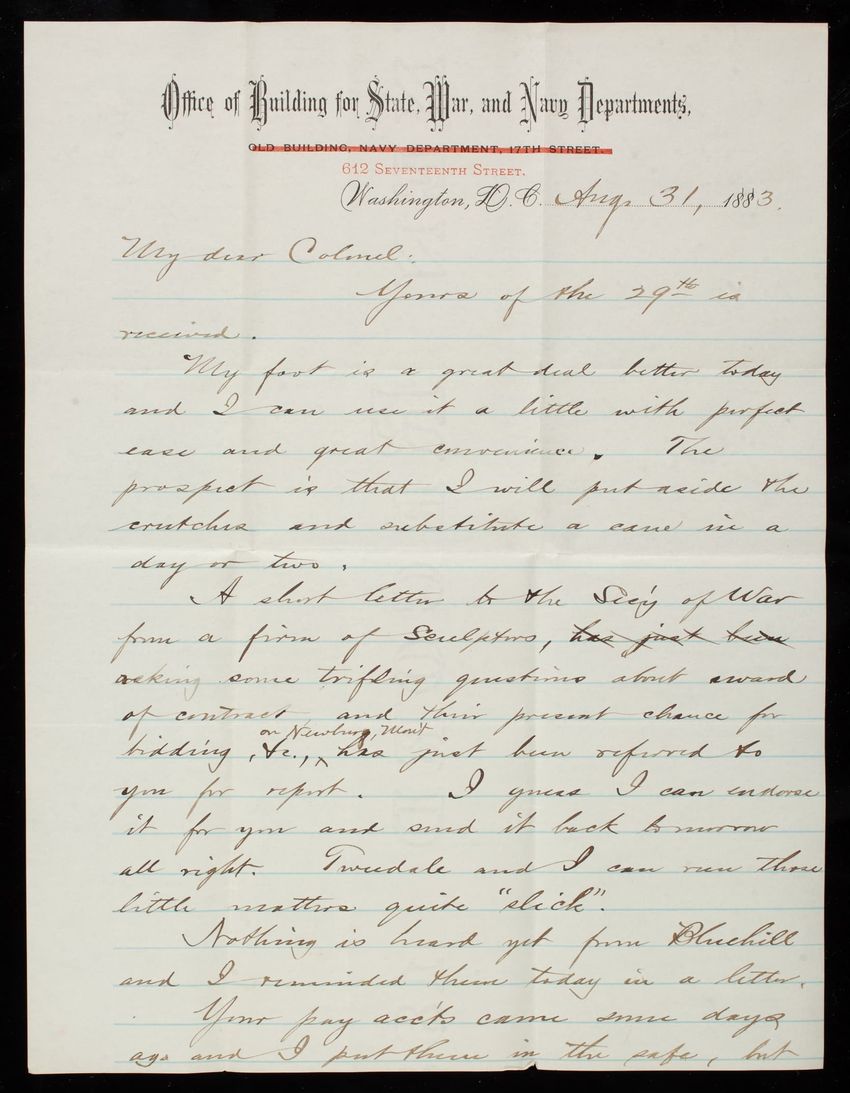 Office of Building for State, War, and Navy Departments,
OLD BUILDING, NAVY DEPARTMENT, 17TH STREET.
612 SEVENTEENTH STREET.
Washington, D.C. Aug. 31, 1883.
My dear Colonel:
Yours of the 29th is
received.
My foot is a great deal better today
and I can use it a little with perfect
ease and great convenience. The
prospect is that I will put aside the
crutches and substitute a cane in a
day or two.
A short letter to the Sec'y of War
from a firm of Sculptors, has just been
asking some trifling questions about award
of contract and their present chance for
on Newburg, Mont
bidding, &c., has just been referred to
you for report. I guess I can endorse
it for you and send it back tomorrow
all right. Tweedale and I can run those
little matters quite "slick".
Nothing is heard yet from Bluehill
and I reminded them today in a letter.
Your pay acc'ts came some days
ago and I put them in the safe, but